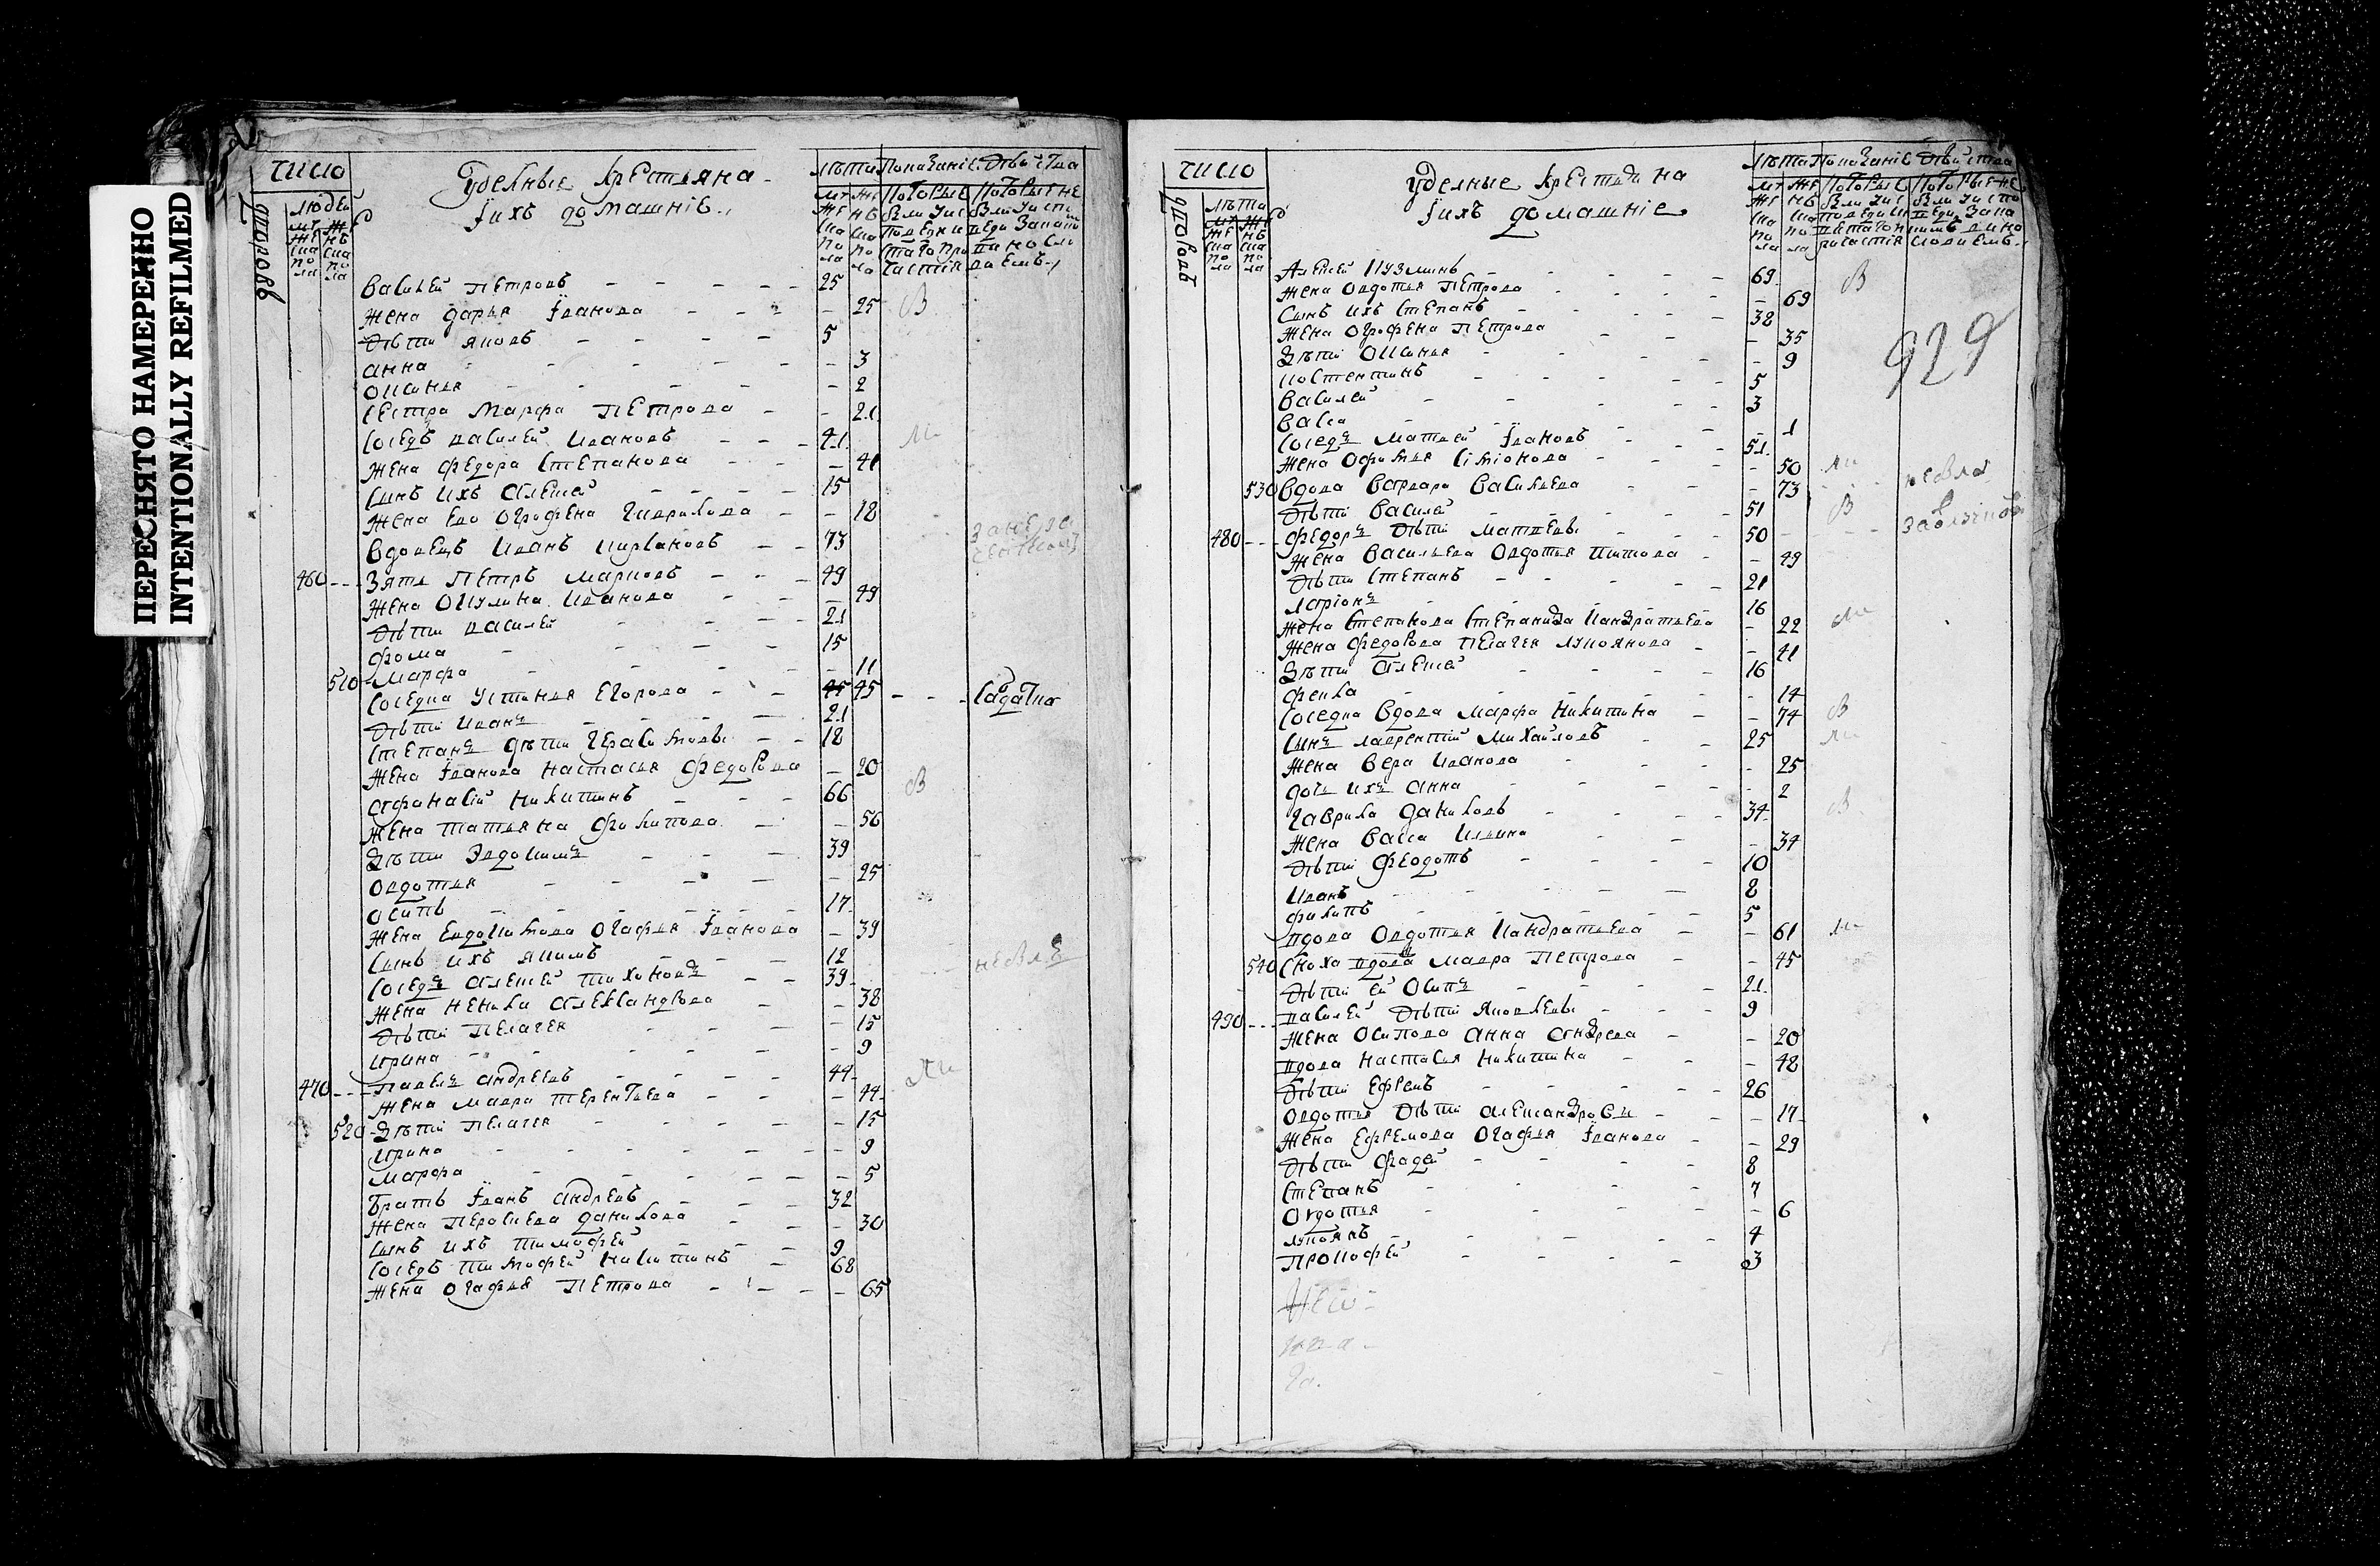 ПЕРЕСНЯТО НАМЕРЕННО
INTENTIONALLY REFILMED
число
дворовъ
людей
Удельные крестьяна
ихъ домашніе
лѣта
Василей Петровъ 25
жена дарья Іванова 25 В
дѣти яковъ 5
анна 3
оксинья 2
сестра Марфа Петрова 21
соседъ василей ивановъ 41
жена федора степанова 41
сынъ ихъ алексей 15
жена ево огрофена гаврилова 18
вдовецъ иванъ 73
460 зять Петръ марковъ 49
жена окулина иванова 49
дѣти василей 21
фома 15
510 марфа 11
соседка устинья егорова 45 45
дѣти иванъ 21
степанъ дѣти герасимовы 18
жена іванова настасья федорова 20
афанасій никитинъ 66 В
жена татьяна филипова 56
дѣти эвдокимъ 39
овдотья 25
осипъ 17
жена евдокимова огафья іванова 39
сынъ ихъ якимъ 12
соседъ алексей тихоновъ 39
жена ненила александрова 38
дѣти пелагея 15
ирина 9
470 павелъ андреевъ 44
жена мавра терентьева 44
520 дѣти пелагея 15
ирина 9
марфа 5
братъ іванъ андреевъ 32
жена данилова 30
сынъ ихъ тимофей 9
соседъ тимофей никитинъ 68
жена огафья петрова 65
число
дворовъ
лѣта
уделные крестьяна
ихъ домашніе
лѣта
929
алексей кузминъ 69 В
жена овдотья петрова 69
сынъ ихъ степанъ 38
жена огрофена петрова 35
дѣти оксинья 9
костентинъ 5
василей 3
васса 1
соседъ матвей івановъ 51
жена офимья симіонова 50
530 вдова варвара васильева 73
дѣти василей 51 В
480 федоръ дѣти матвеевы 50
жена васильева овдотья титова 49
дѣти степанъ 21
ларіонъ 16
жена степанова степанида кандратьева 22
жена федорова пелагея лукоянова 41
дѣти алексей 16
фекла 14
соседка вдова марфа никитина 74 В
сынъ лаврентій михайловъ 25
жена вера иванова 25
дочь ихъ анна 2
гаврила даниловъ 34 В
жена васса ильина 34
дѣти феодотъ 10
иванъ 8
филипъ 5
вдова овдотья кандратьева 61
540 сноха вдова мавра петрова 45
дѣти ей осипъ 21
490 василей дѣти яковлевы 9
жена осипова анна андреева 20
вдова настасья никитина 48
дѣти ефремъ 26
овдотья дѣти александровы 17
жена ефремова огафья іванова 29
дѣти фадей 8
степанъ 7
овдотья 6
лукоянъ 4
прокофей 3